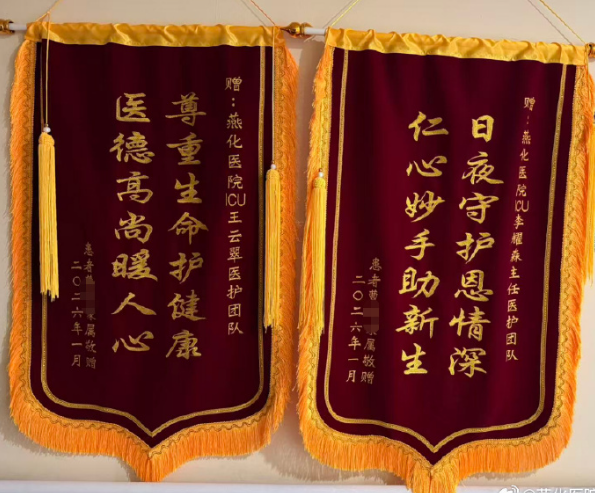 赠：燕化医院ICU王云翠医护团队
尊重生命护健康
医德高尚暖人心
患者 属敬赠
二〇二六年一月
赠：燕化医院ICU李耀森主任医护团队
日夜守护恩情深
仁心妙手助新生
患者曹 属敬赠
二〇二六年一月
@燕化医院